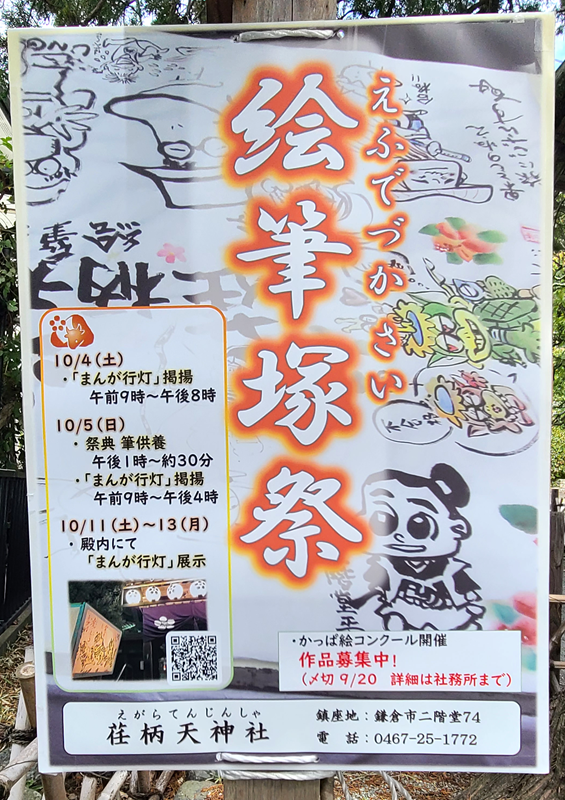 絵筆塚祭
えふでづかさい
10/4(土)
・「まんが行灯」掲揚
午前9時〜午後8時
10/5(日)
・祭典 筆供養
午後1時〜約30分
・「まんが行灯」掲揚
午前9時〜午後4時
10/11(土)〜13(月)
・殿内にて
「まんが行灯」展示
・かっぱ絵コンクール開催
作品募集中!
(〆切 9/20 詳細は社務所まで)
えがらてんじんしゃ
荏柄天神社
鎮座地:鎌倉市二階堂74
電 話:0467-25-1772